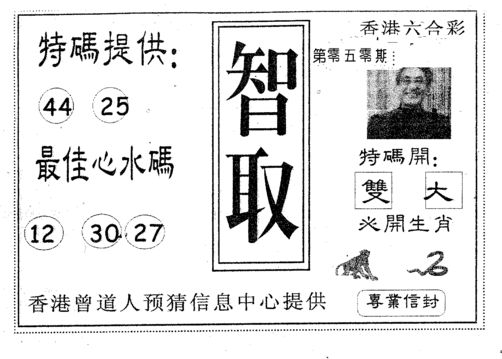 香港六合彩
特碼提供：
第零五零期：
智取
44 25
最佳心水碼
特碼開：
雙 大
必開生肖
12 30 27
香港曾道人预猜信息中心提供
專業信封